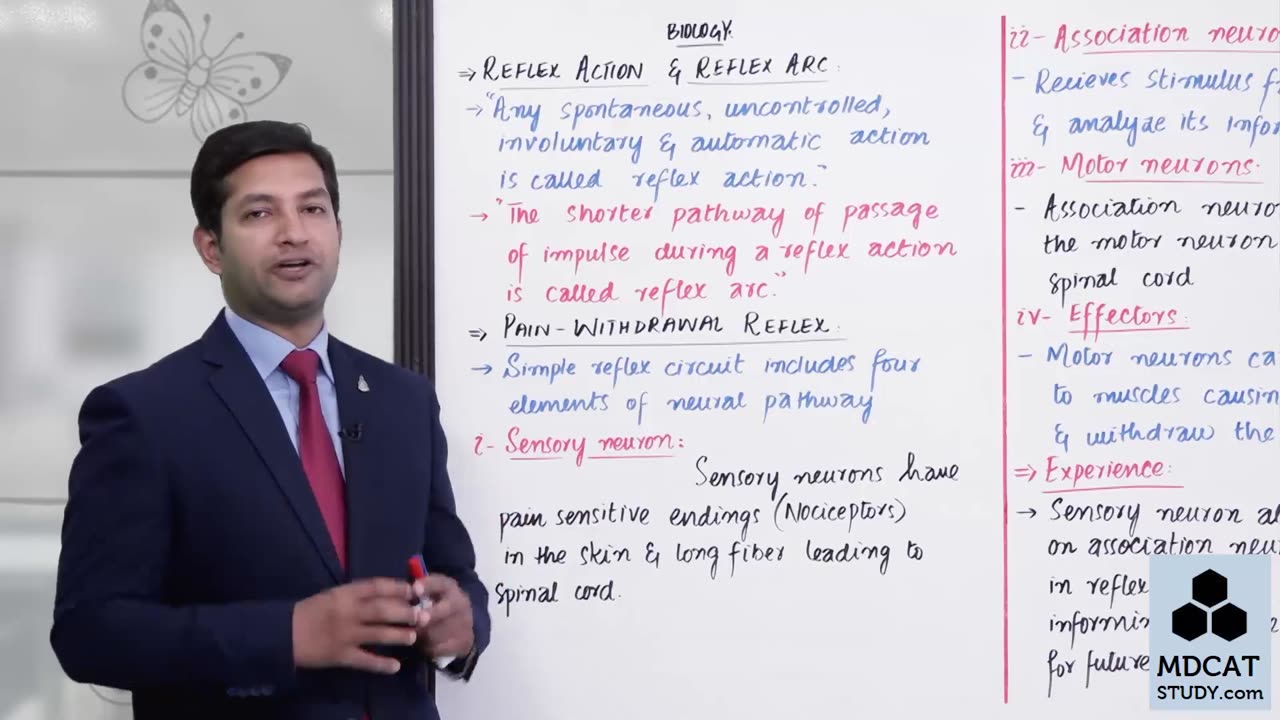 BIOLOGY.
⇒ REFLEX ACTION & REFLEX ARC.
→ "Any spontaneous, uncontrolled,
involuntary & automatic action
is called reflex action."
→ "The shorter pathway of passage
of impulse during a reflex action
is called reflex arc."
⇒ PAIN-WITHDRAWAL REFLEX.
→ Simple reflex circuit includes four
elements of neural pathway
i- Sensory neuron:
Sensory neurons have
pain sensitive endings (Nociceptors)
in the skin & long fiber leading to
spinal cord.
ii- Association neuro
- Recieves stimulus f
& analyze its infor
iii- Motor neurons.
- Association neuro
the motor neuron
spinal cord
iv- Effectors.
- Motor neurons ca
to muscles causin
& withdraw the
⇒ Experience:
→ Sensory neuron al
on association neu
in reflex
informin
for future
MDCAT
STUDY.com